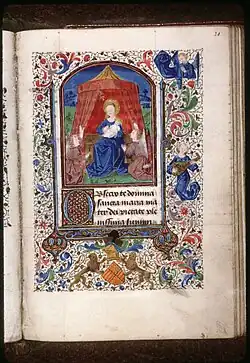 Obsecro te domina
sancta maria ma
ter dei pietate ple
nissima summi